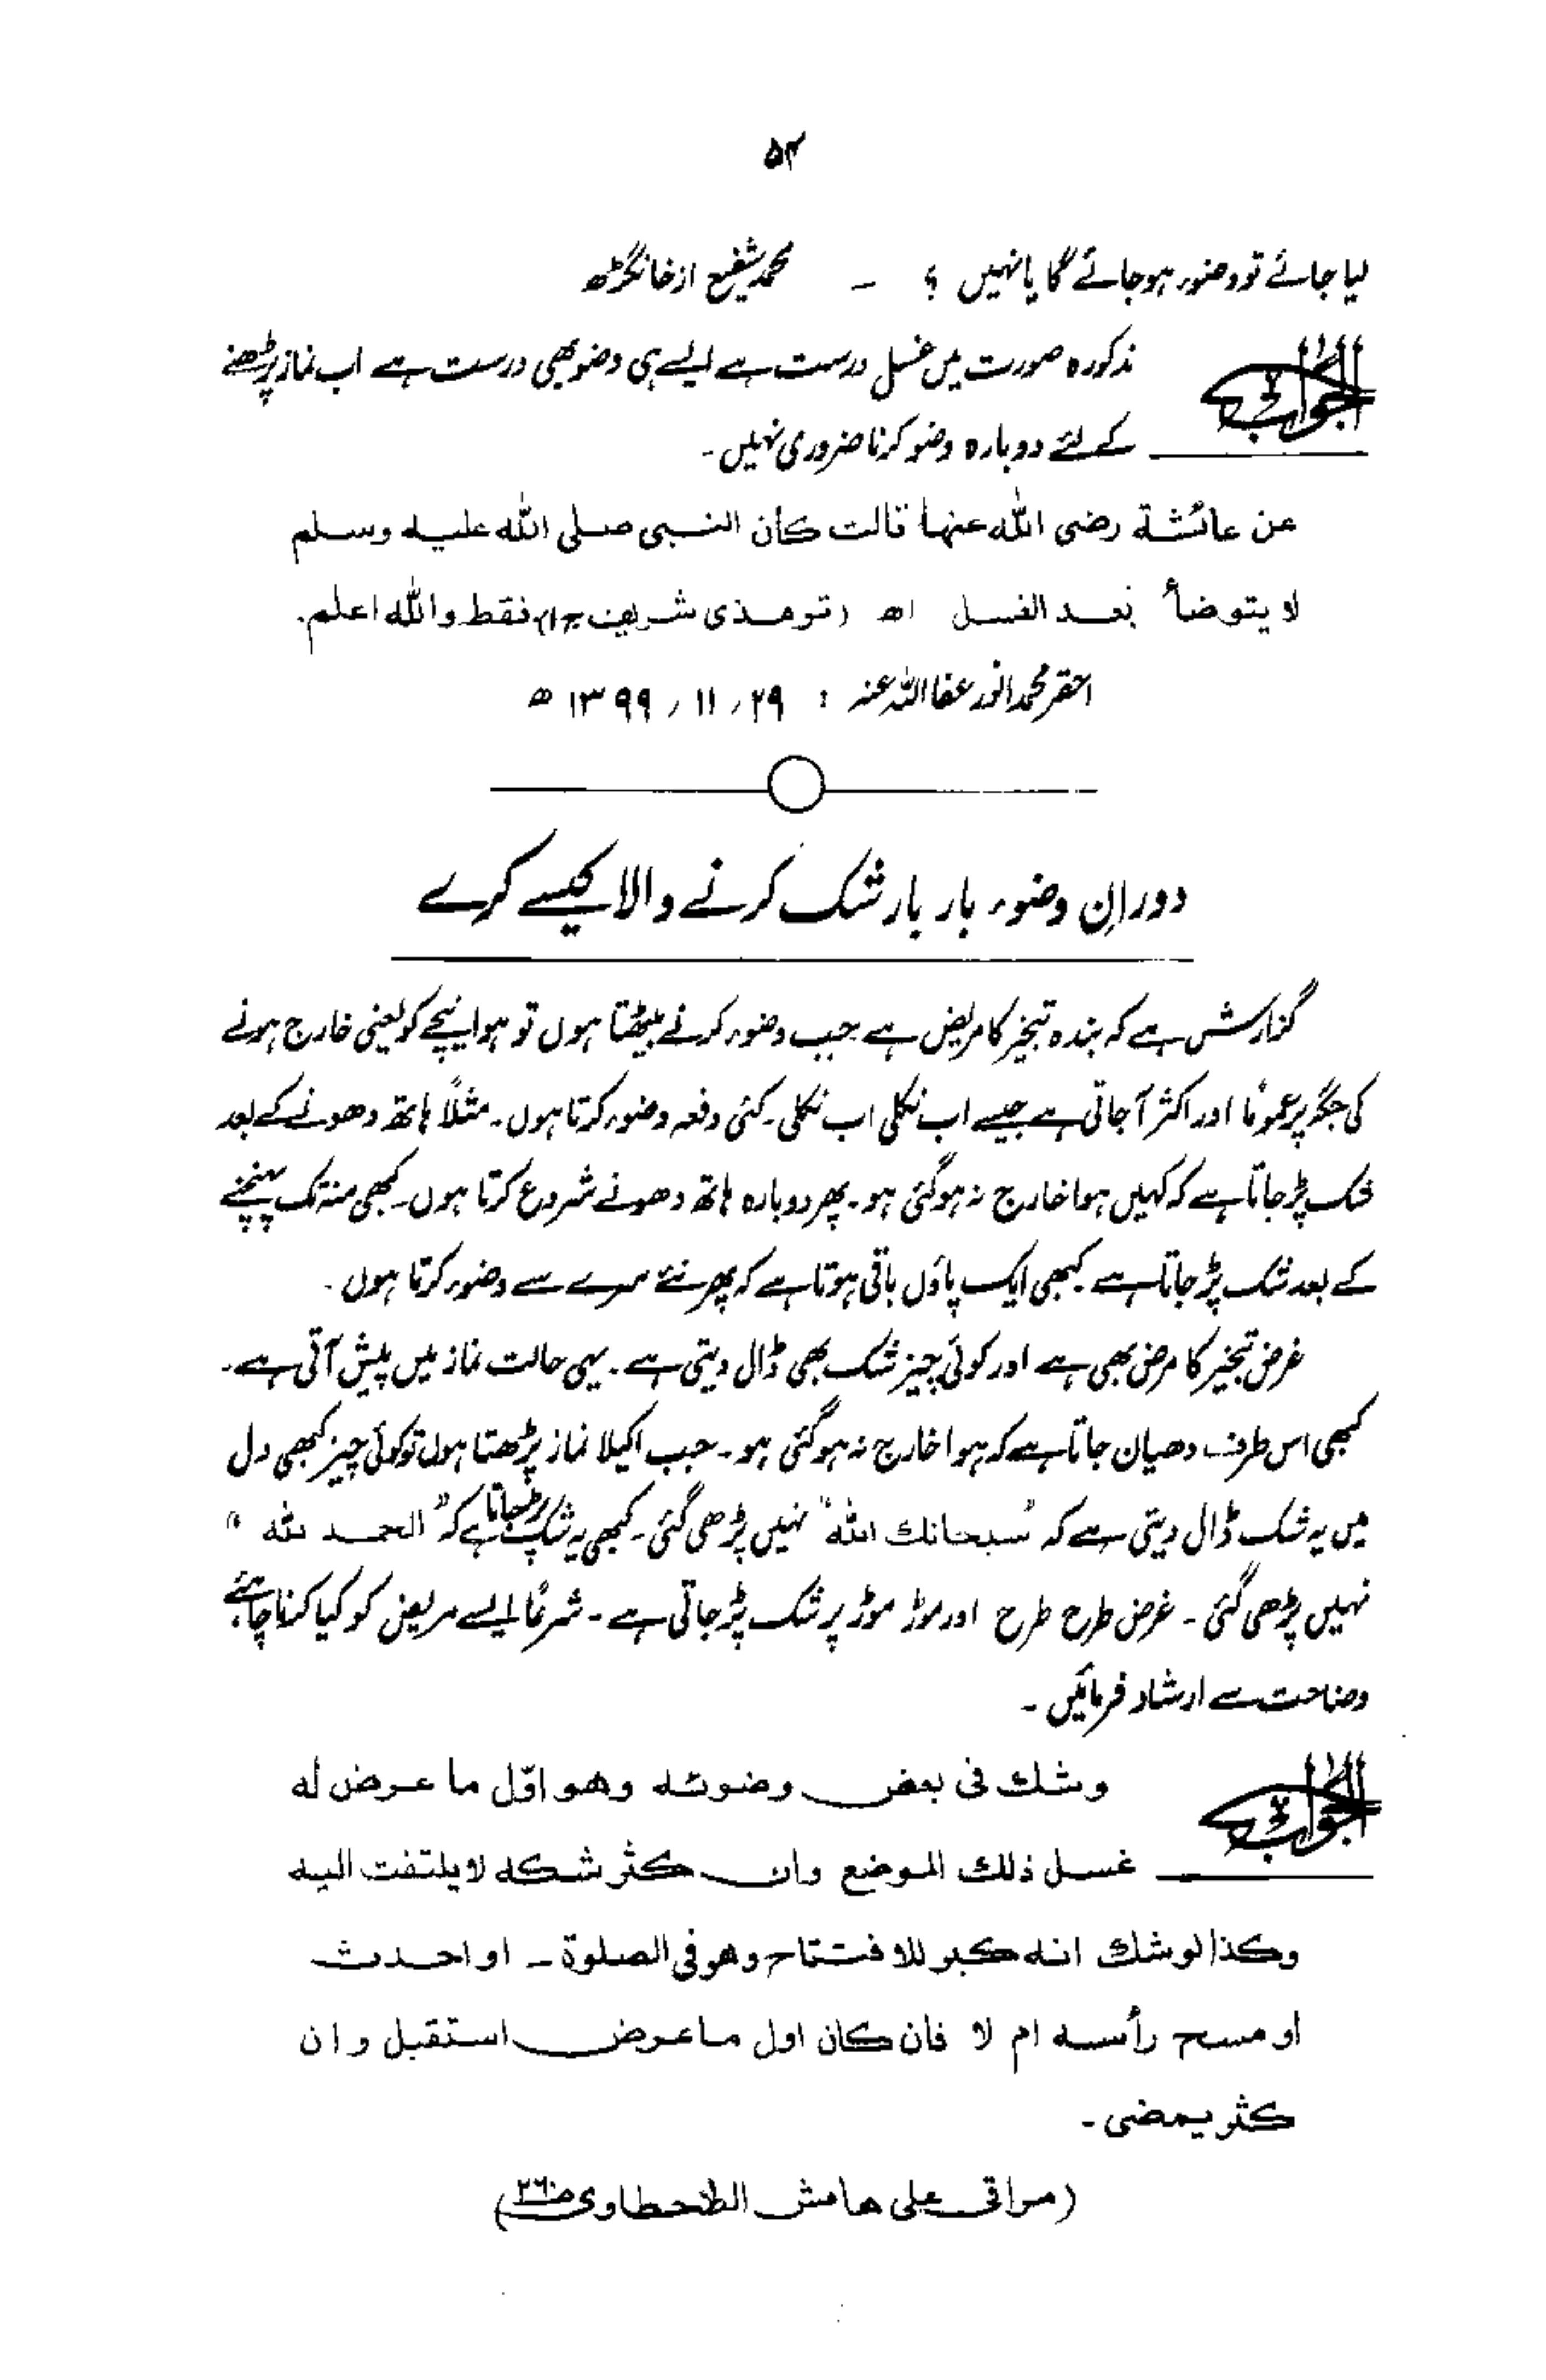 ۵۲
لیا جائے تو وضوء ہو جائے گا یا نہیں ؟ ـ محمد شفیع از خانگڑھ
الجواب مذکورہ صورت میں غسل درست ہے ایسے ہی وضو بھی درست ہے اب نماز پڑھنے
کے لئے دوبارہ وضو کرنا ضروری نہیں۔
عن عائشة رضی اللہ عنہا قالت کان النبی صلی اللہ علیہ وسلم
لا یتوضأ بعد الغسل اھ (ترمذی شریف ج۱)، فقط واللہ اعلم.
احقر محمد انور عفا اللہ عنہ : ۲۹ ؍ ۱۱ ؍ ۱۳۹۹ ھ
دورانِ وضوء بار بار شک کرنے والا کیسے کرے
گزارش ہے کہ بندہ تبخیر کا مریض ہے جب وضوء کرنے بیٹھتا ہوں تو ہوا نیچے کو یعنی خارج ہونے
کی جگہ پر عموماً اور اکثر آجاتی ہے جیسے اب نکلی اب نکلی۔ کئی دفعہ وضوء کرتا ہوں۔ مثلاً ہاتھ دھونے کے بعد
شک پڑ جاتا ہے کہ کہیں ہوا خارج نہ ہو گئی ہو۔ پھر دوبارہ ہاتھ دھونے شروع کرتا ہوں۔ کبھی منہ تک پہنچنے
کے بعد شک پڑ جاتا ہے۔ کبھی ایک پاؤں باقی ہوتا ہے کہ پھر نئے سرے سے وضوء کرتا ہوں۔
غرض تبخیر کا مرض بھی ہے اور کوئی چیز شک بھی ڈال دیتی ہے۔ یہی حالت نماز میں پیش آتی ہے۔
کبھی اس طرف دھیان جاتا ہے کہ ہوا خارج نہ ہو گئی ہو۔ جب اکیلا نماز پڑھتا ہوں تو کوئی چیز کبھی دل
میں یہ شک ڈال دیتی ہے کہ "سبحانك اللہ" نہیں پڑھی گئی۔ کبھی یہ شک پڑ جاتا ہے کہ "الحمد للہ"
نہیں پڑھی گئی۔ غرض طرح طرح اور موڑ موڑ پر شک پڑ جاتی ہے۔ شرعاً ایسے مریض کو کیا کرنا چاہئے
وضاحت سے ارشاد فرمائیں۔
الجواب وشك فی بعض وضوئه وهو اوّل ما عرض له
غسل ذلك الموضع وان کثر شکه لا یلتفت الیه
وکذا لو شك انه کبر للافتتاح وهو فی الصلوة ـ او احدث
او مسح رأسه ام لا فان کان اول ما عرض استقبل وان
کثر یمضی۔
(مراقی علی هامش الطحطاوی ص۲۶۰)